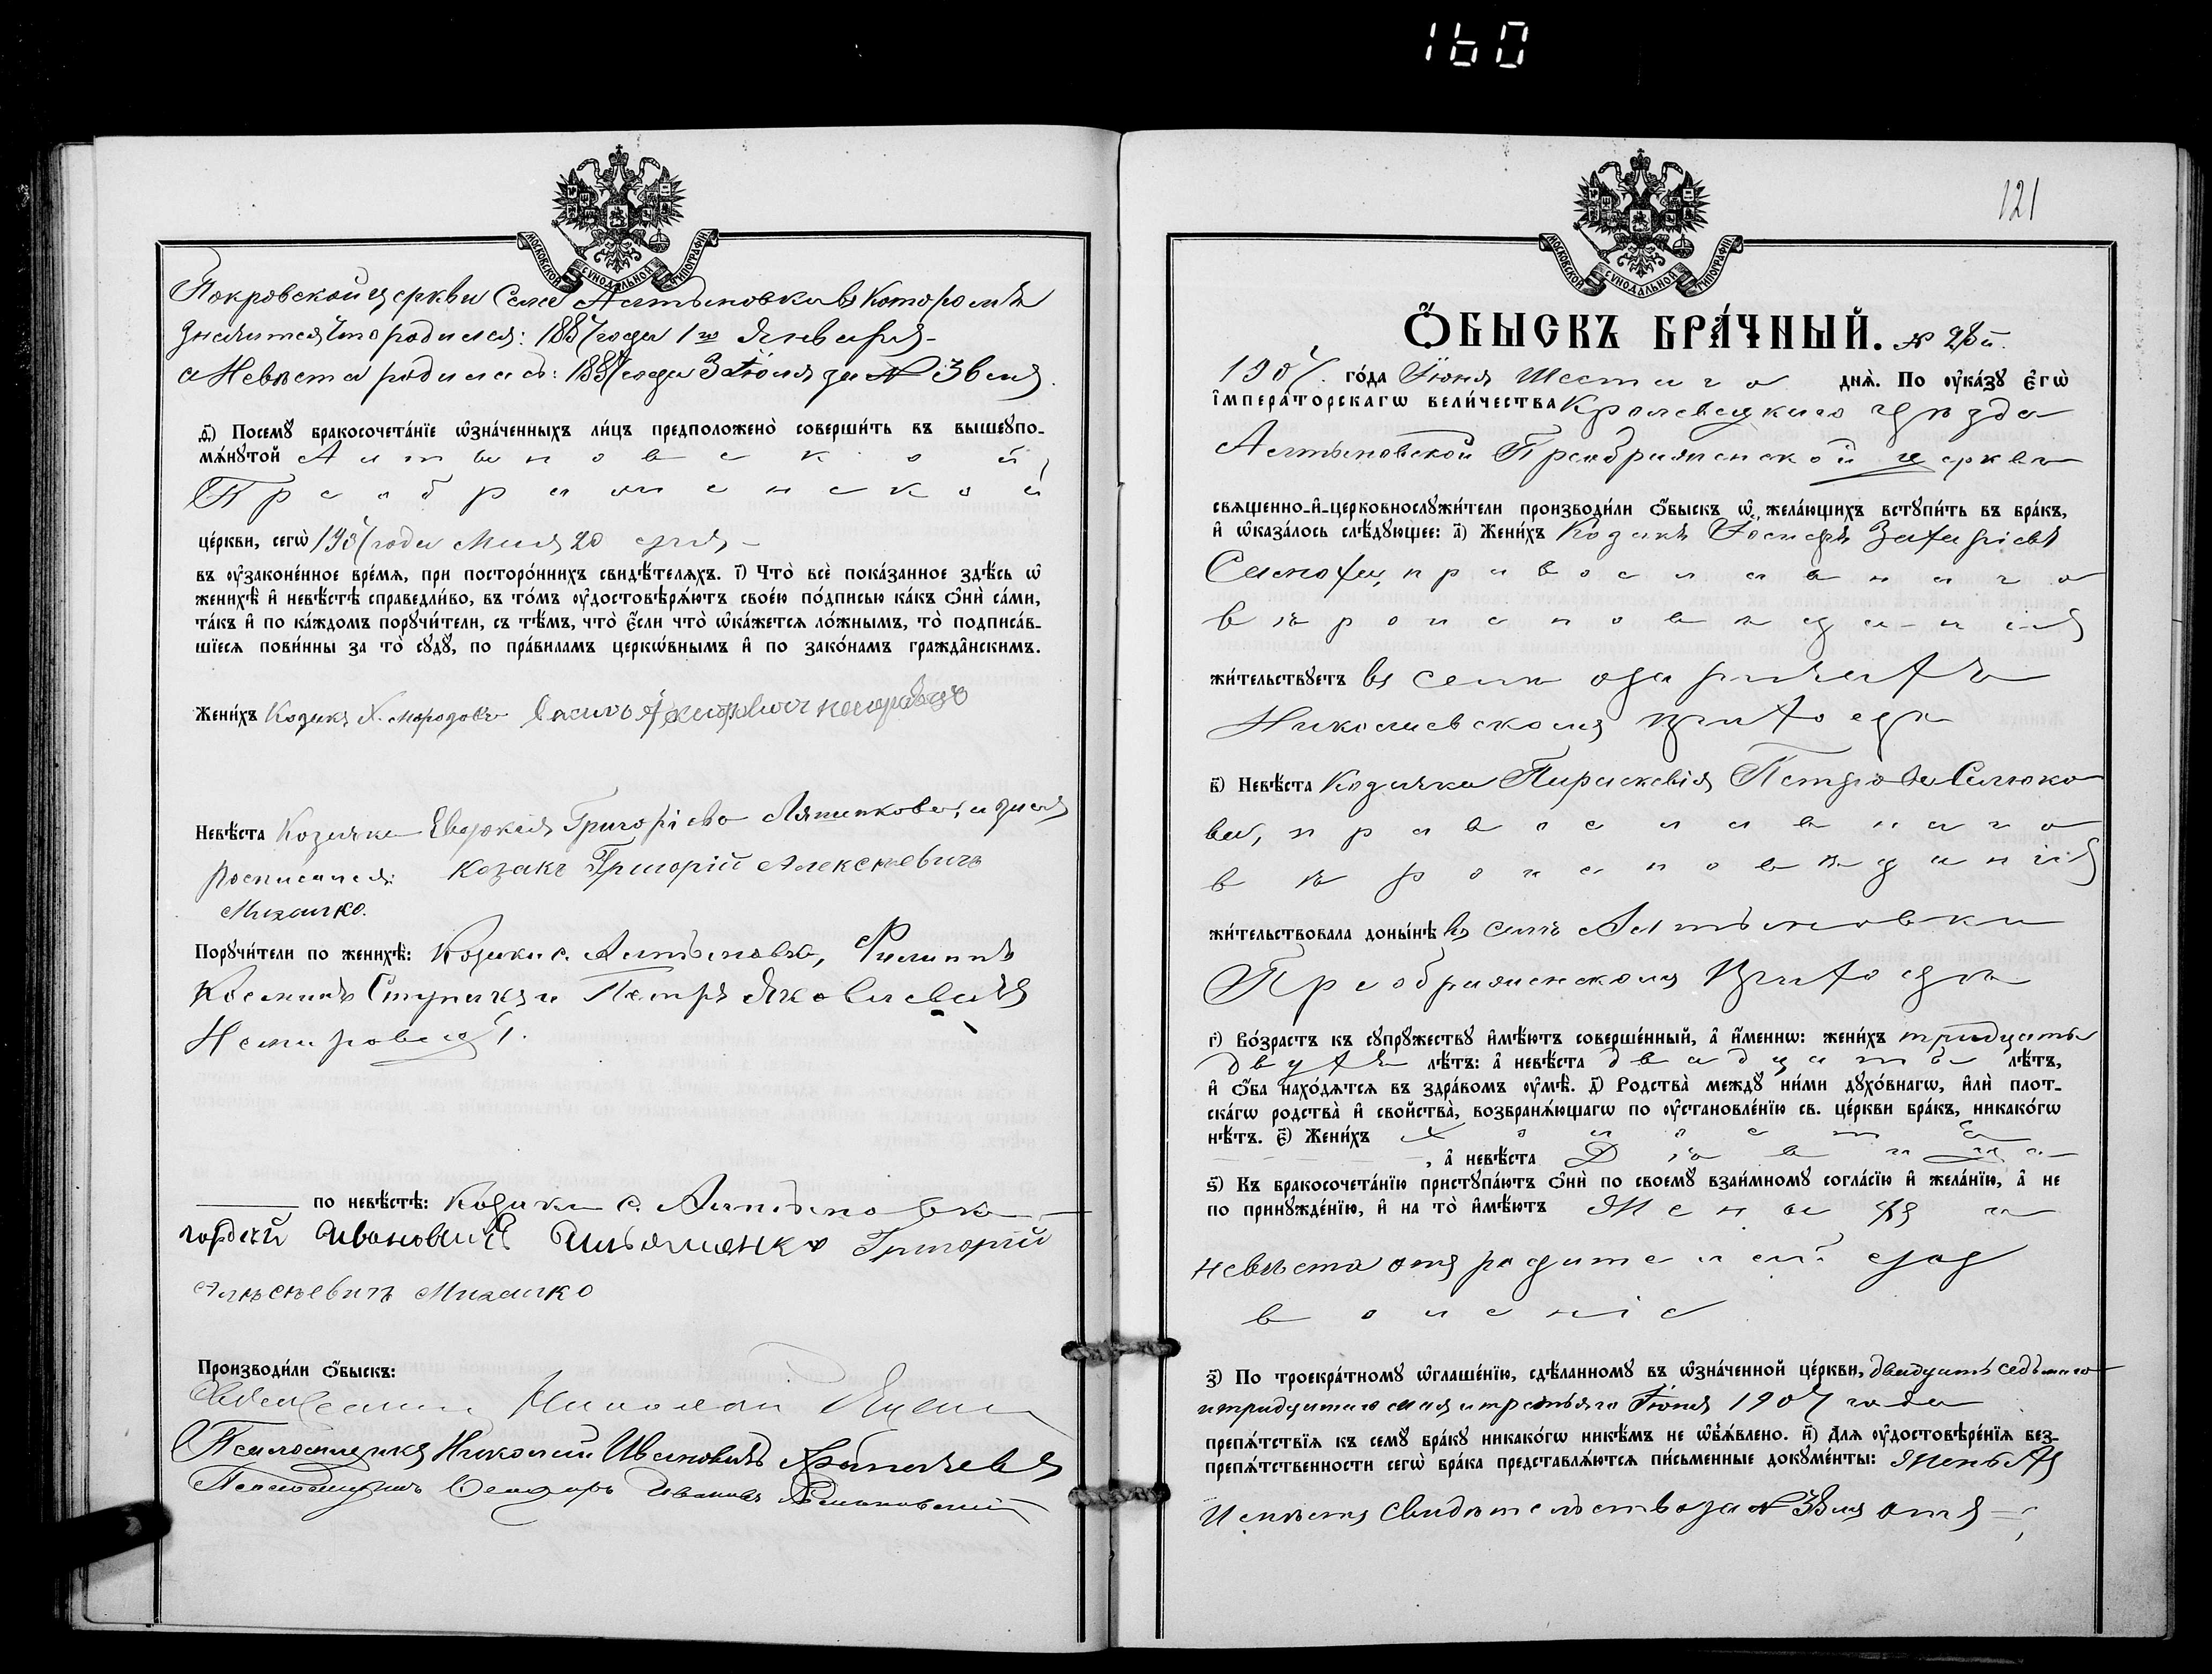 160
МОСКОВСКОЙ СУНОДАЛЬНОЙ ТИПОГРАФІИ
Покровской церкви Села Алтыновки въ Которомъ
значится что родился: 1887 года 1го Января
а Невѣста родилась: 1887 года 3 Іюля за № 38мъ.
д҃) Посемꙋ̀ бракосочета́нїе ѡ҆зна́ченныхъ ли́цъ предположено̀ соверши́ть въ вышеꙋпо-
мѧ́нꙋтой Алтыновской,
Преображенской
це́ркви, сегѡ̀ 1907 года Мая 20 дня,
въ ᲂу҆законе́нное вре́мѧ, при посторо́ннихъ свидѣ́телѧхъ. і҃) Что̀ всѐ пока́занное здѣ́сь ѡ҆
женихѣ̀ и҆ невѣ́стѣ справедли́во, въ то́мъ ᲂу҆достовѣрѧ́ютъ свое́ю по́дписью ка́къ ѻ҆нѝ са́ми,
та́къ и҆ по ка́ждомъ порꙋчи́тели, съ тѣ́мъ, что̀ є҆́сли что̀ ѡ҆ка́жетсѧ ло́жнымъ, то̀ подписа́в-
шїесѧ пови́нны за то̀ сꙋдꙋ̀, по пра́виламъ церкѡ́внымъ и҆ по зако́намъ гражда̑нскимъ.
Жени́хъ Козакъ
Невѣ́ста Козачка Евдокія Григорьева
Росписался: Козакъ Григорій Алексѣевичъ
Михалко.
Порꙋчи́тели по женихѣ̀: Козаки с. Алтыновки, Филиппъ
Косминъ и Петръ Яковлевичъ
по невѣ́стѣ: Козаки с. Алтыновки
Гордей Ивановичъ Григорій
Алексѣевичъ Михалко
Производи́ли ѻ҆́быскъ:
Священникъ Николай
Псаломщикъ Николай Ивановичъ
Псаломщикъ Ивановъ
121
МОСКОВСКОЙ СУНОДАЛЬНОЙ ТИПОГРАФІИ
Ѻ҆́БЫСКЪ БРА́ЧНЫЙ. № 28й.
1907. го́да Іюня Шестаго днѧ̀. По ᲂу҆ка́зꙋ є҆гѡ̀
і҆мпера́торскагѡ вели́чества Кролевецкаго уѣзда
Алтыновской Преображенской церкви
свѧщенно-и҆-церковнослꙋжи́тели производи́ли ѻ҆́быскъ ѡ҆ жела́ющихъ встꙋпи́ть въ бра́къ,
и҆ ѡ҆каза́лось слѣ́дꙋющее: а҃) Жени́хъ Козакъ Іосифъ Захаріевъ
православнаго
вѣроисповѣданія
жи́тельствꙋетъ въ селѣ
Николаевскомъ приходѣ
в҃) Невѣ́ста Козачка Параскевія Петрова Силюко
ва, православнаго
вѣроисповѣданія
жи́тельствовала доны́нѣ въ селѣ Алтыновки
Преображенскомъ Приходѣ
г҃) Во́зрастъ къ сꙋпрꙋ́жествꙋ и҆мѣ́ютъ соверше́нный, а҆ и҆́меннѡ: жени́хъ тридцати
двухъ лѣ́тъ: а҆ невѣ́ста двадцати лѣ́тъ,
и҆ ѻ҆́ба нахо́дѧтсѧ въ здра́вомъ ᲂу҆мѣ̀. д҃) Родства̀ междꙋ̀ ни́ми дꙋхо́внагѡ, и҆лѝ плот-
ска́гѡ родства̀ и҆ сво́йства̀, возбранѧ́ющагѡ по ᲂу҆становле́нїю св. це́ркви бра́къ, никако́гѡ
нѣ́тъ. є҃) Жени́хъ Холостъ
, а҆ невѣ́ста Дѣвица
ѕ҃) Къ бракосочета́нїю пристꙋпа́ютъ ѻ҆нѝ по своемꙋ̀ взаи́мномꙋ согла́сїю и҆ жела́нїю, а҆ не
по принꙋжде́нїю, и҆ на то̀ и҆мѣ́ютъ Женихъ и
невѣста отъ родителей доз
воленіе
з҃) По троекра́тномꙋ ѡ҆глаше́нїю, сдѣ́ланномꙋ въ ѡ҆зна́ченной це́ркви, двадцать седьмаго
и тридцатаго мая и третьяго Іюня 1907 года
препѧ́тствїѧ къ семꙋ̀ бра́кꙋ никако́гѡ никѣ́мъ не ѡ҆б̾ѧ́влено. и҃) Длѧ ᲂу҆достовѣре́нїѧ без-
препѧ́тственности сегѡ̀ бра́ка представлѧ́ютсѧ пи́сьменные докꙋме́нты: Женихъ
Имѣетъ свидѣтельство за № 38мъ отъ